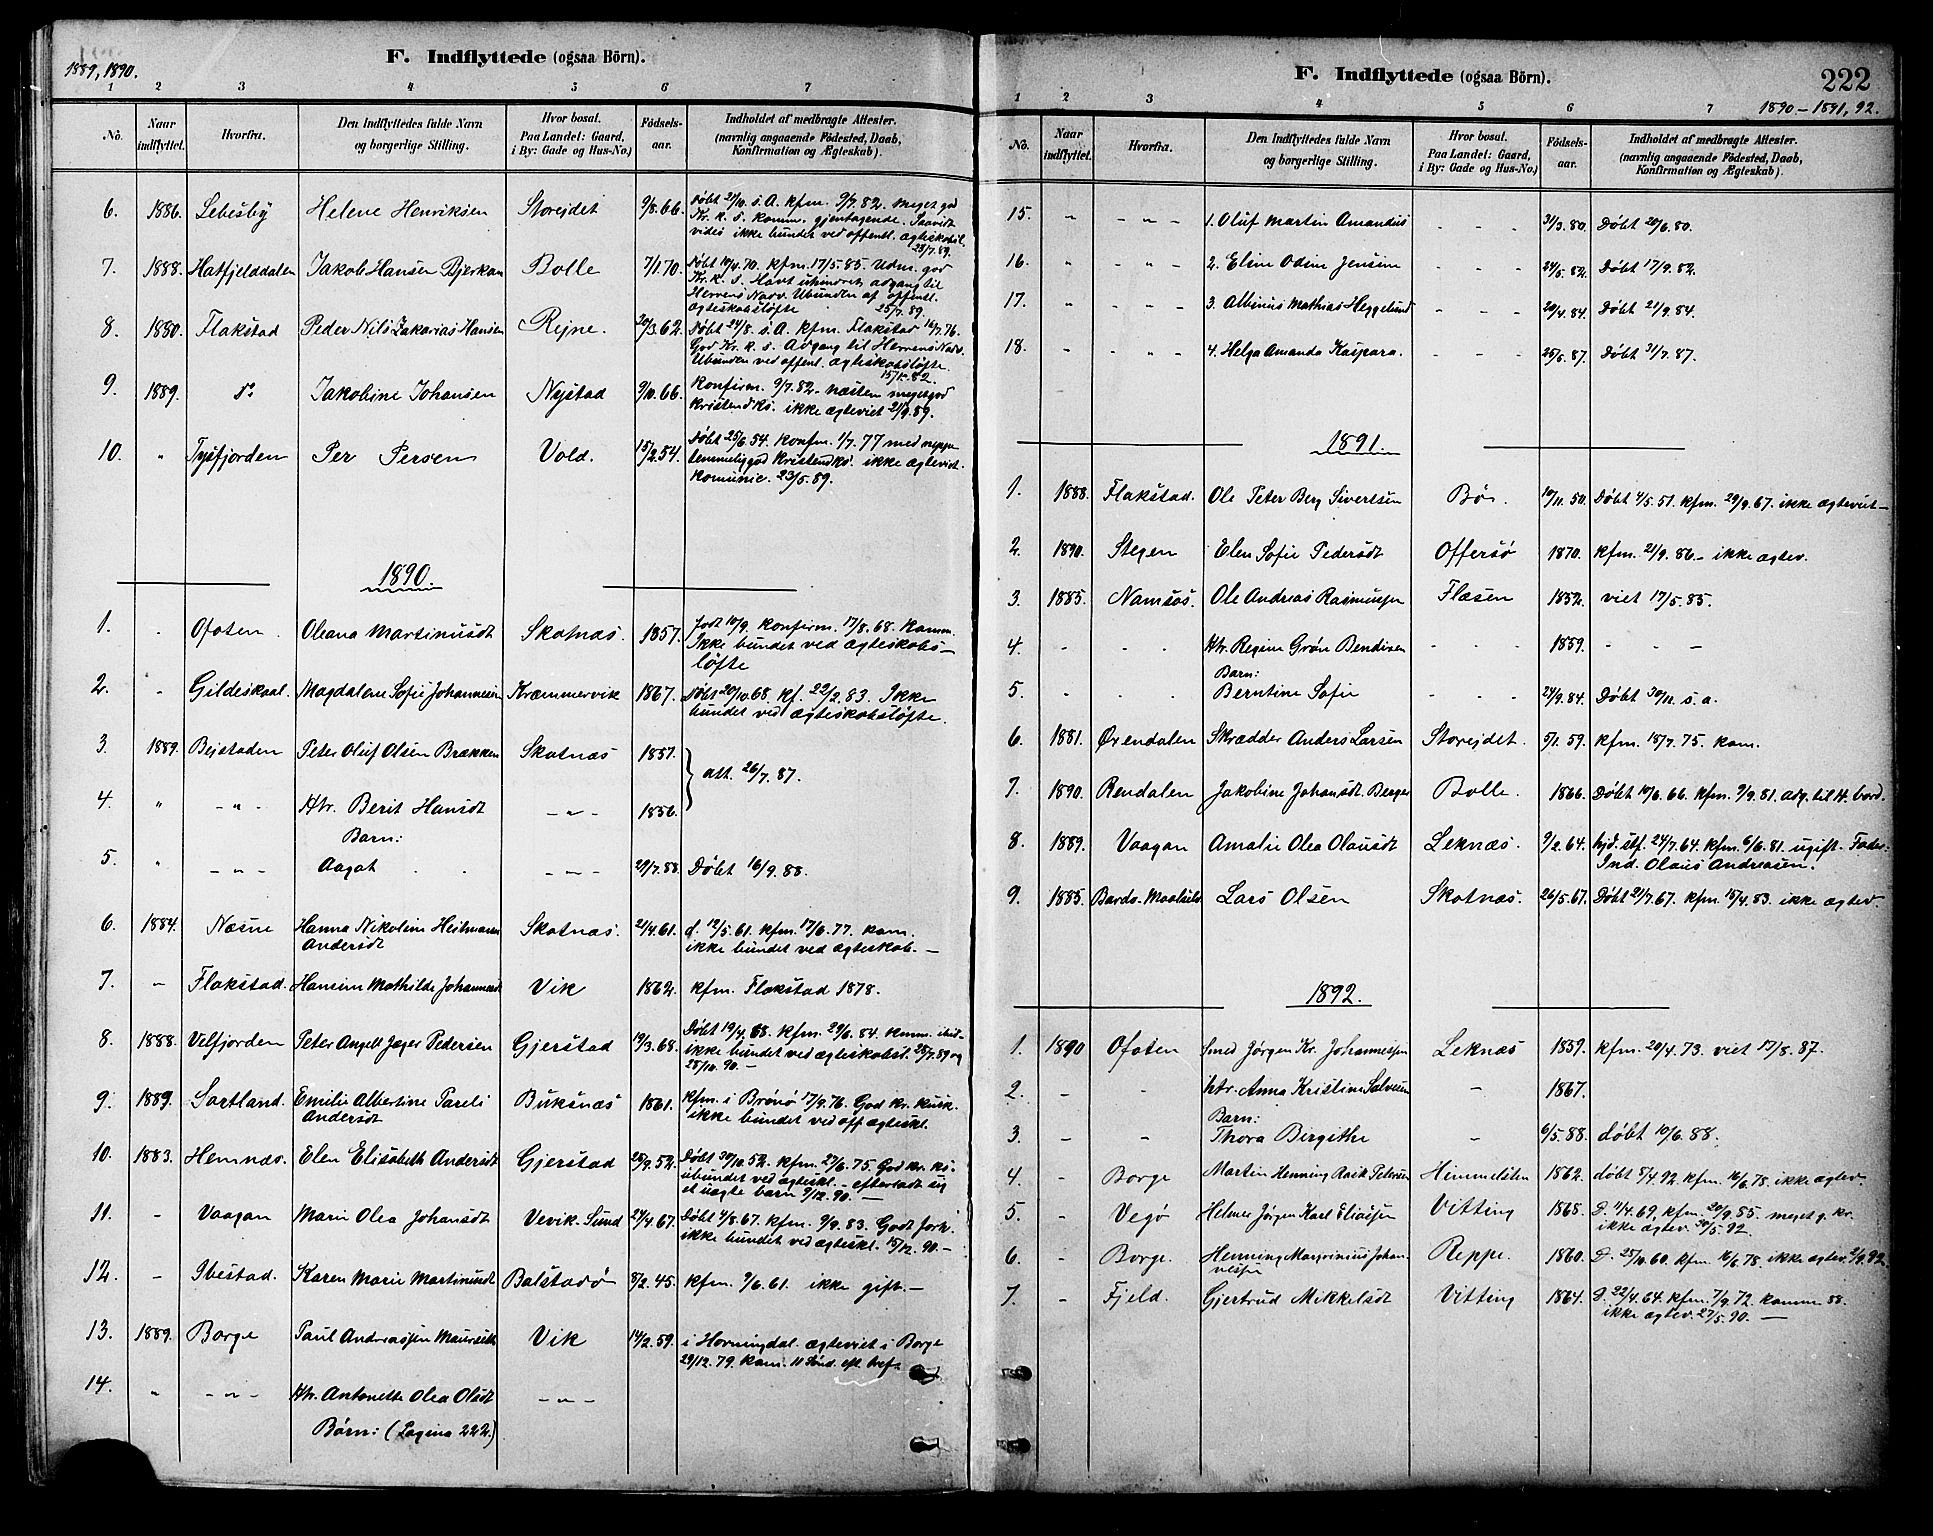 1889, 1890.
F. Indflyttede (ogsaa Börn).
1 2 3 4 5 6 7
No. Naar indflyttet. Hvorfra. Den Indflyttedes fulde Navn og borgerlige Stilling. Hvor bosat. Paa Landet: Gaard, i By: Gade og Hus-No.) Födsels-aar. Indholdet af medbragte Attester. (navnlig angaaende Födested, Daab, Konfirmation og Ægteskab).
6. 1886. Lebesby Helene Henriksen Storejdet 9/8.66. Døbt 21/10 s. A. kfm. 9/7.82. Meget god
Kr. k. s. komm. gjentagende. Saavidt
vides ikke bundet ved offentl. ægteskabsl.
23/7.89.
7. 1888. Hatfjelddalen Jakob Hansen Bjerkan Bolle 7/1.70. Døbt 19/4.70. kfm. 17/5.85. Udm. god
Kr. k. s. Havt uhindret adgang til
Herrens Nadv. Ubunden af offentl.
ægteskabsløfte 25/7.89.
8. 1880. Flakstad Peder Nils Zakarias Hansen Rejne. 20/3.62. Døbt 24/8. s. A. kfm. Flakstad 16/7.76.
God Kr. k. s. Adgang til Herrens Nadv.
Ubunden ved offent. ægteskabsløfte.
15/1.82.
9. 1889. do Jakobine Johansen Nystad 9/10.66. Konfirm. 9/7.82. næsten meget god
kristendks. ikke ægteviet 21/9.89.
10. " Tysfjorden Per Persen Vold. 15/2.54. Døbt 25/6.54. Konfm. 1/7.77 med neppe
temmelig god kristendks. ikke ægteviet.
Komunic. 23/5.89.
1890.
1. . Ofoten. Oleana Martinusdt Skotnæs. 1857. født 10/9. Konfirm. 17/8.68. Komm.
Ikke bundet ved ægteskabs-
løfte
2. " Gildeskaal. Magdalene Sofie Johannesen Kræmmervik 1867. Døbt 20/10.68. kf. 22/2.83. Ikke
bundet ved ægteskabsløfte.
3. 1889. Bejstaden Peter Oluf Olsen Brækken Skotnæs 1857. } att. 26/7.87.
4. " - " - Htr. Berit Hansdt - " - 1856.
Barn:
5. " - " - Aagot - " - 29/7.88. Døbt 16/9.88.
6. 1884. Næsne Hanna Nikoline Heitmann Skotnæs. 21/4.61. d. 12/5.61. kfm. 17/6.77. kom.
Andersdt ikke bundet ved ægteskab. -
7. - Flakstad. Hansine Mathilde Johannesdt Vik 1862. kfm. Flakstad 1878.
8. 1888. Velfjorden Peter Angell Jæger Pedersen Gjerstad 19/3.68. Døbt 19/4.68. kfm. 29/6.84. komm.
ikke bundet ved ægteskabsl. 28/7.89 og
28/10.90. -
9. 1889. Sortland. Emilie Albertine Pareli Buksnæs 1861. kfm. i Brønø 17/9.76. God kr. kusk.
Andersdt ikke bundet ved off ægteskl.
10. 1883. Hemnæs. Elen Elisabeth Andersdt Gjerstad 28/9.52. Døbt 30/10.52. kfm. 27/6.75. God kr. ks.
ubundet ved ægteskl. - efterladt sig
et uægte barn 9/12.90. -
11. - Vaagan Marie Olea Johansdt Vevik. Sund 27/4.67. Døbt 4/8.67. kfm. 9/9.83. Godt
ikke bundet ved ægteskl. 15/12.90. -
12. - Ibestad. Karen Marie Martinusdt Balstadø 8/2.45. kfm. 9/6.61. ikke gift. -
13. 1889. Borge Paul Andreassen Vik 14/2.59. i Horningdal. ægteviet i Borge
29/12.79. kom. 11 Sønd. eft. tref.
14. " - " - Htr. Antonette Olea Olsdt - " -
Børn: (Pagina 222.)
F. Indflyttede (ogsaa Börn).
222
1890 - 1891, 92.
1 2 3 4 5 6 7
No. Naar indflyttet. Hvorfra. Den Indflyttedes fulde Navn og borgerlige Stilling. Hvor bosat. Paa Landet: Gaard, i By: Gade og Hus-No.) Födsels-aar. Indholdet af medbragte Attester. (navnlig angaaende Födested, Daab, Konfirmation og Ægteskab).
15. " - " - 1. Oluf Martin Amandus - - - 31/3.80. Døbt 20/6.80.
16. " - " - 2. Eline Odine Jensine - - - 24/5.82. Døbt 17/9.82.
17. " - " - 3. Albinus Mathias Heggelund - - - 20/4.84. Døbt 21/9.84.
18. - - " - 4. Helga Amanda Kaspara. - - - 25/5.87. Døbt 31/7.87.
1891.
1. 1888. Flakstad. Ole Peter Berg Sivertsen Bø. 19/11.50. Døbt 4/5.51. kfm. 29/9.67. ikke ægteviet -
2. 1890. Stegen Elen Sofie Pedersdt Offersø 1870. kfm. 21/9.86 - ikke ægtev.
3. 1885. Namsos. Ole Andreas Rasmussen Flæsen 1852. viet 17/5.85.
4. - - Htr. Regine Grøn Bendixen - - - 1859. - - -
Barn:
5. - - Berntine Sofie - - - 24/9.84. Døbt 30/11. s. a.
6. 1881. Øxendalen Skrædder Anders Larsen Storejdet. 5/1.59. kfm. 18/7.75. kom.
7. 1890. Rendalen Jakobine Johansdt Berger Bolle 1866. Døbt 10/6.66. kfm. 9/9.81. adg. til H. bord.
8. 1889. Vaagan Amalie Olea Olausdt Leknæs. 9/2.64. hjd. stf. 24/7.64. kfm. 6/6.81. ugift. Fader
Ind. Olaus Andreasen.
9. 1885. Bardo-Maalselv Lars Olsen Skotnæs. 26/5.67. Døbt 21/7.67. kfm. 15/4.83. ikke ægtev.
1892.
1. 1890 Ofoten Smed Jørgen Kr. Johannessen Leknæs 1859. kfm. 20/4.73. viet 17/8.87.
2. - - htr. Anna Kristine Salvesen - 1867.
Barn:
3. - - Thora Birgithe - 6/5.88. døbt 10/6.88.
4. - Borge Martin Henning Petersen Himmelsten 1862. døbt 8/4.92. kfm. 16/6.78. ikke ægtev.
5. - Vegø Helmer Jørgen Karl Eliassen Vitting 1868. D. 11/4.69. kfm. 20/9.85. meget g. kr.
ikke ægtev. 30/5.92.
6. - Borge. Henning Magrinius Johan- Reppe. 1860. D. 25/10.60. kfm. 16/6.78. ikke ægtev. 2/9.92.
nesen
7. - Fjeld. Gjertrud Mikkelsdt Vitting 1864. D. 22/4.64. kfm. 7/9.72. komm 88.
ikke ægtev. 27/5.90. -